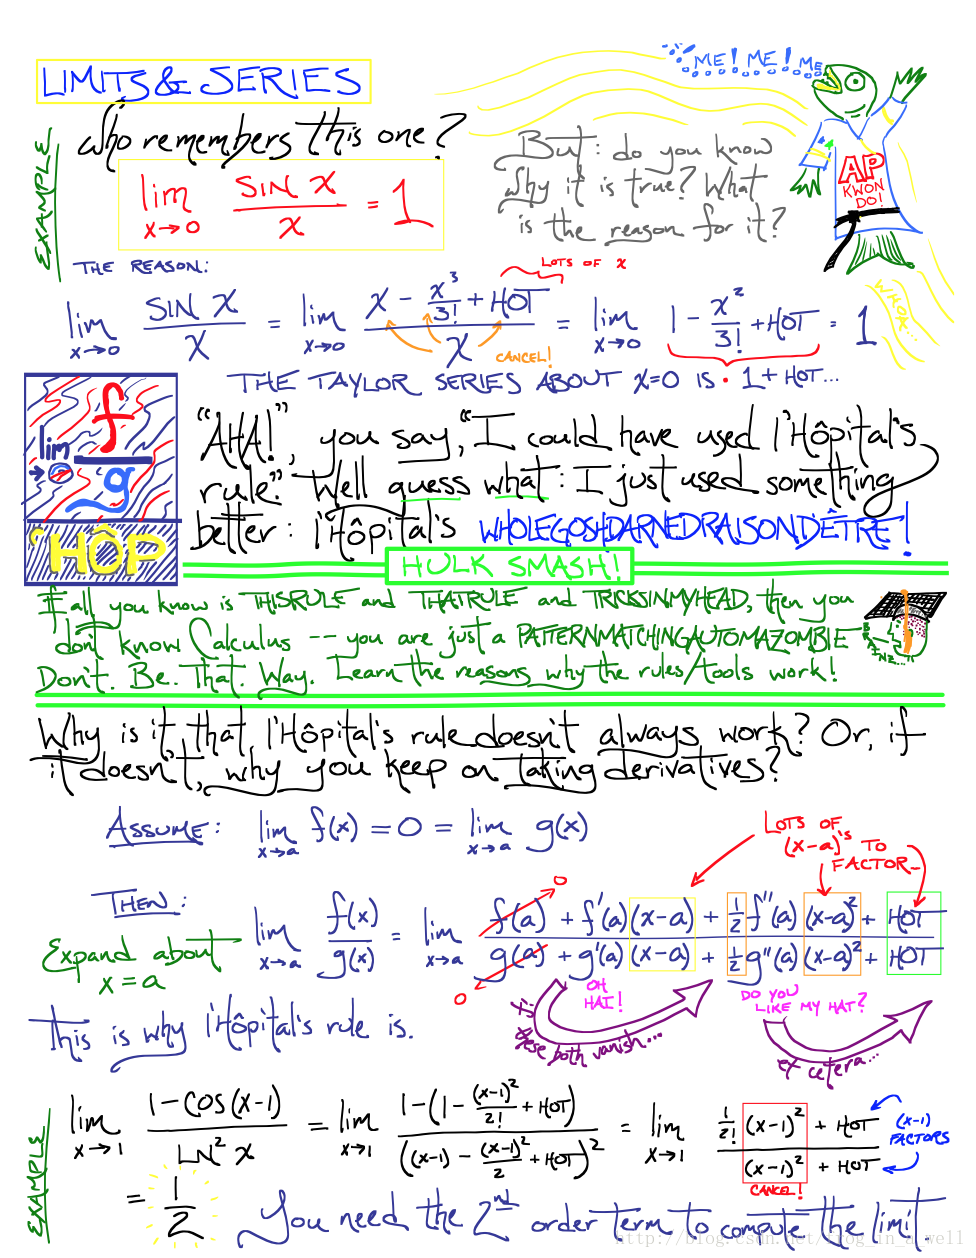 LIMITS & SERIES
ME! ME! ME
EXAMPLE
Who remembers this one?
lim x→0 SIN x / x = 1
But: do you know
why it is true? What
is the reason for it?
AP
KWON
DO!
THE REASON:
LOTS OF x
lim x→0 SIN x / x = lim x→0 (x - x³/3! + HOT) / x = lim x→0 1 - x²/3! + HOT = 1
CANCEL!
THE TAYLOR SERIES ABOUT x=0 IS 1 + HOT...
lim → 0 f / g
L'HÔP
"AHA!", you say, "I could have used l'Hôpital's
rule." Well guess what: I just used something
better: l'Hôpital's WHOLEGOSHDARNEDRAISOND'ÊTRE!
HULK SMASH!
If all you know is THISRULE and THATRULE and TRICKSINMYHEAD, then you
don't know Calculus -- you are just a PATTERNMATCHINGAUTOMAZOMBIE
BRAINZ...
Don't. Be. That. Way. Learn the reasons why the rules/tools work!
Why is it that l'Hôpital's rule doesn't always work? Or, if
it doesn't, why you keep on taking derivatives?
ASSUME: lim x→a f(x) = 0 = lim x→a g(x)
LOTS OF
(x-a)'s TO
FACTOR...
THEN:
lim x→a f(x)/g(x) = lim x→a (f(a) + f'(a)(x-a) + 1/2 f''(a)(x-a)² + HOT) / (g(a) + g'(a)(x-a) + 1/2 g''(a)(x-a)² + HOT)
0
0
Expand about
x = a
OH
HAI!
DO YOU
LIKE MY HAT?
This is why l'Hôpital's rule is.
if
these both vanish...
et cetera...
EXAMPLE
lim x→1 (1 - COS(x-1)) / LN² x = lim x→1 (1 - (1 - (x-1)²/2! + HOT)) / ((x-1) - (x-1)²/2 + HOT)² = lim x→1 (1/2! (x-1)² + HOT) / ((x-1)² + HOT)
(x-1)
FACTORS
CANCEL!
= 1/2
You need the 2nd order term to compute the limit.
http://blog.csdn.net/frog_in_a_well